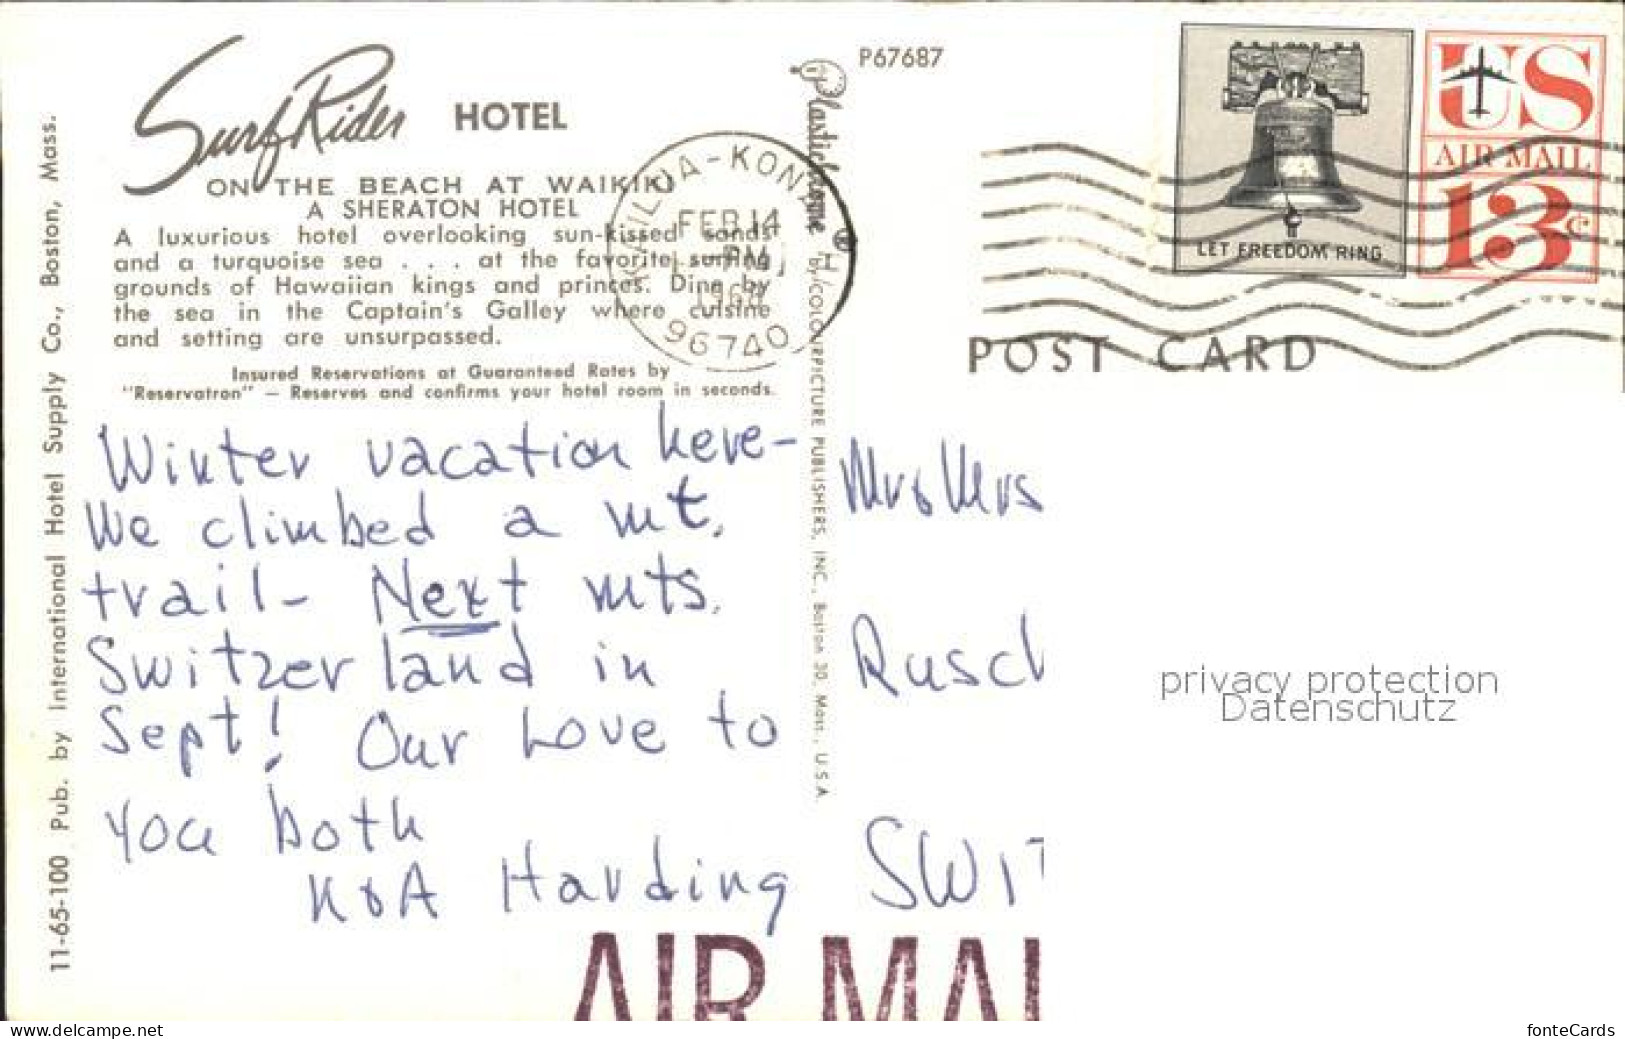 SurfRider HOTEL
ON THE BEACH AT WAIKIKI
A SHERATON HOTEL
A luxurious hotel overlooking sun-kissed sands
and a turquoise sea . . . at the favorite surfing
grounds of Hawaiian kings and princes. Dine by
the sea in the Captain's Galley where cuisine
and setting are unsurpassed.
Insured Reservations at Guaranteed Rates by
"Reservatron" — Reserves and confirms your hotel room in seconds.
11-65-100 Pub. by International Hotel Supply Co., Boston, Mass.
Winter vacation here-
We climbed a mt.
trail- Next mts.
Switzerland in
Sept! Our Love to
you both
K&A Harding
Plastichrome ® by COLOURPICTURE PUBLISHERS, INC., Boston 30, Mass., U.S.A.
P67687
KAILUA-KONA, H
FEB 14
PM
1968
96740
LET FREEDOM RING
US
AIR MAIL
13c
POST CARD
Mrs
Rusch
SWIT
privacy protection
Datenschutz
AIR MAI
www.delcampe.net
fonteCards